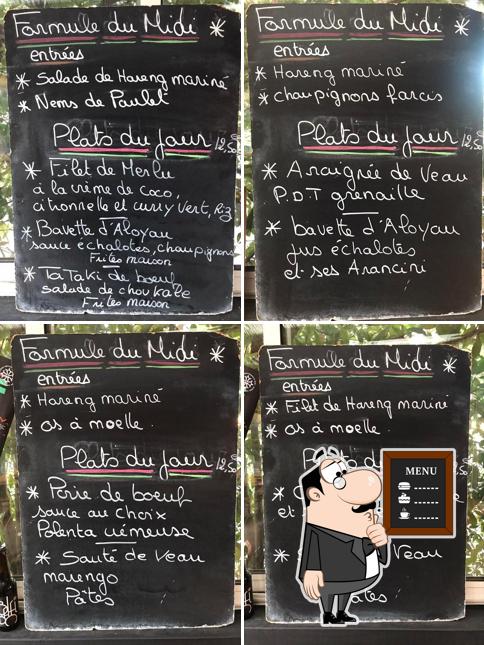 Formule du Midi *
entrées
* Salade de Hareng mariné
* Nems de Poulet
Plats du jour 12,50
* Filet de Merlu
à la crème de coco,
citronnelle et curry vert, Riz
* Bavette d'Aloyau
sauce échalotes, champignons
Frites maison
* TaTaki de boeuf
salade de chou Kale
Frites maison
Formule du Midi *
entrées
* Hareng mariné
* champignons farcis
Plats du jour 12,50
* Araignée de Veau
P.D.T grenaille
* bavette d'Aloyau
jus échalotes
et ses Arancini
Formule du Midi *
entrées
* Hareng mariné
* os à moelle.
Plats du jour 12,50
* Poire de boeuf
sauce au choix
Polenta crémeuse
* Sauté de Veau
marengo
Pâtes
Formule du Midi *
entrées
* Filet de Hareng mariné
* os à moelle.
MENU
et
Veau